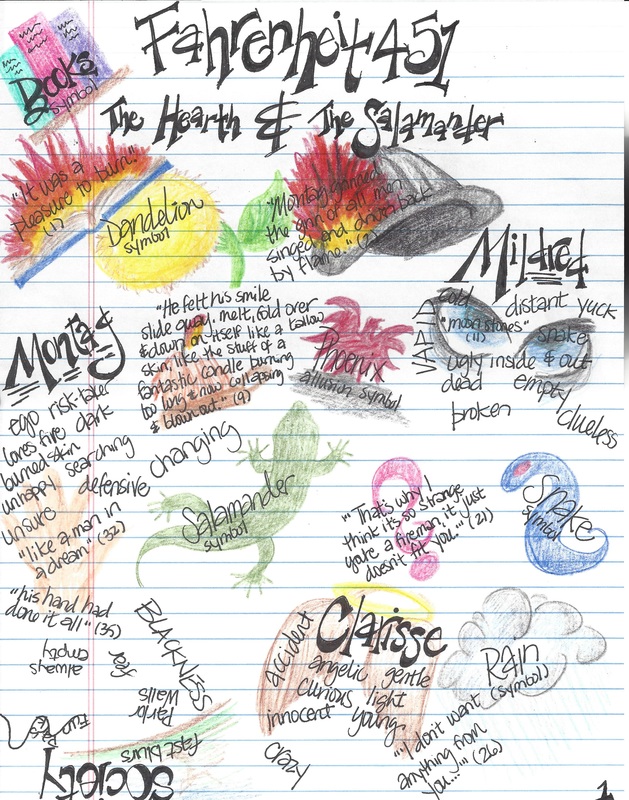 Fahrenheit 451
The Hearth & The Salamander
Books
symbol
"It was a
pleasure to burn."
(1)
Dandelion
symbol
"Montag grinned
the grin of all men
singed and driven back
by flame."
Mildred
cold
distant yuck
"moon stones"
(11)
snake
VAPID
ugly inside & out
dead empty
broken
clueless
Montag
ego risk-taker
loves fire dark
burned skin
unhappy searching
unsure defensive
changing
"like a man in
a dream" (32)
"his hand had
done it all" (35)
"He felt his smile
slide away, melt, fold over
& down on itself like a tallow
skin, like the stuff of a
fantastic candle burning
too long & now collapsing
& blown out." (9)
Phoenix
allusion symbol
Salamander
symbol
"That's why I
think it's so strange
you're a fireman, it just
doesn't fit you..." (21)
Snake
symbol
Clarisse
accident
angelic gentle
curious light
innocent young
crazy
Rain
(symbol)
"I don't want
anything from
you..." (26)
BLACKNESS
fear
always
empty
Parlor
Walls
fast blurs
Fun Parks
Society
1